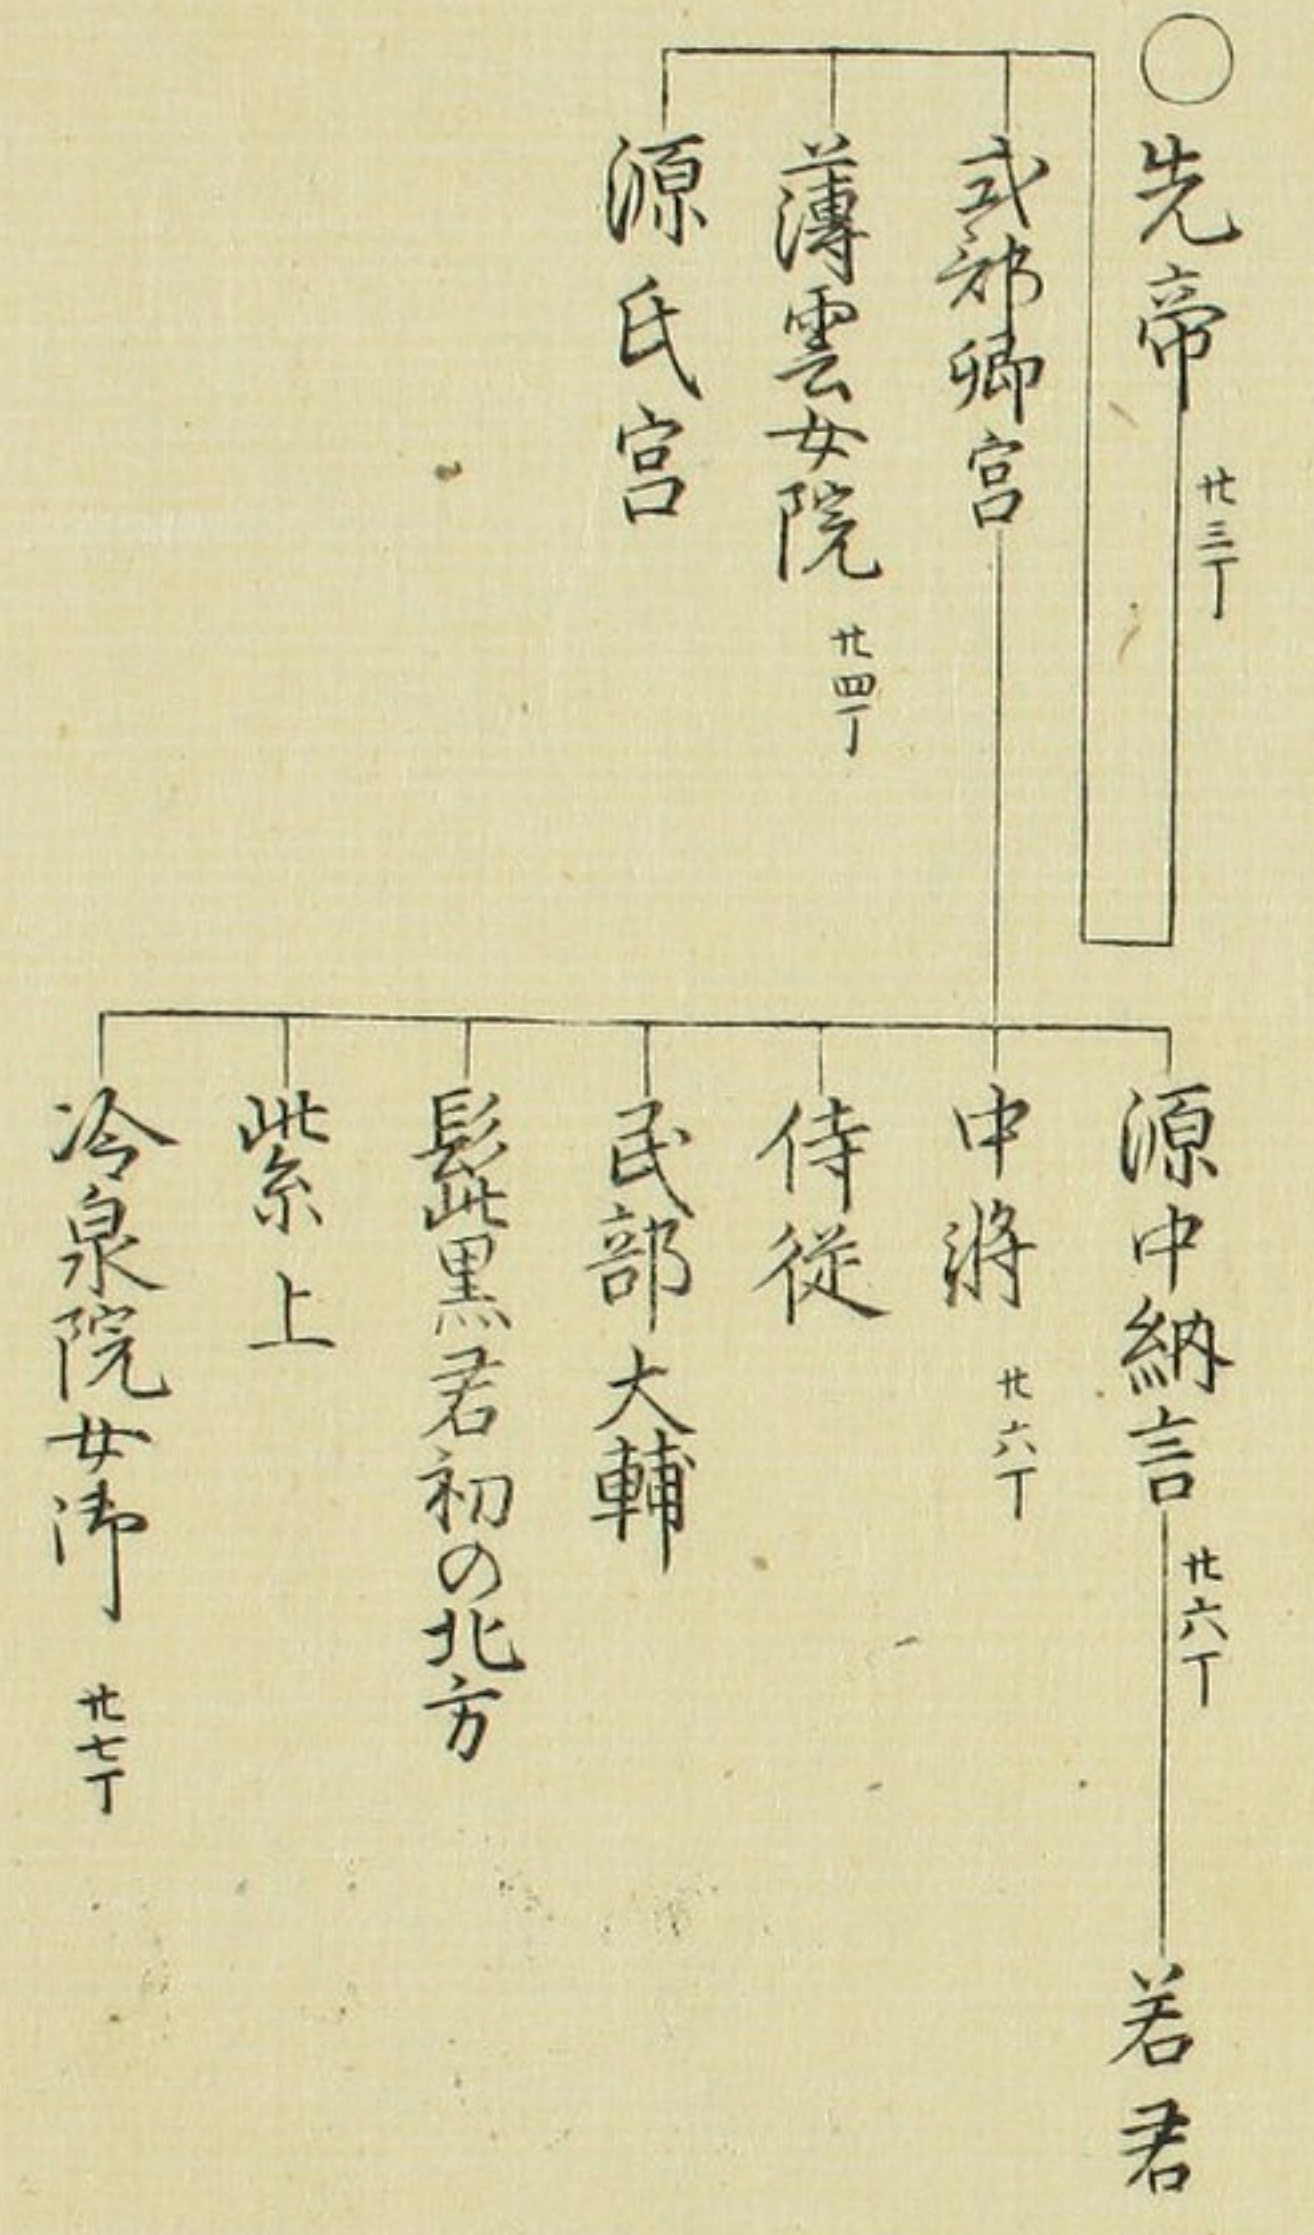 ○先帝 廿三丁
式部卿宮
薄雲女院 廿四丁
源氏宮
源中納言 廿六丁
若君
中将 廿六丁
侍従
民部大輔
髭黒君初の北方
紫上
冷泉院女御 廿七丁